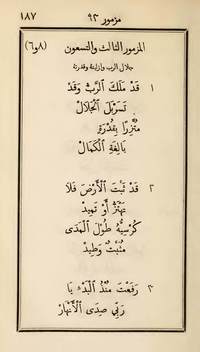 ١٨٧ مزمور ٩٣
المزمور الثالث والتسعون (٨و٦)
جلال الرب وازليتة وقدرتة
١ قَدْ مَلَكَ ٱلرَّبُّ وَقَدْ
تَسَرْبَلَ ٱلْجَلَالْ
مُتَّزِرًا بِقُدْرَةٍ
بَالِغَةِ ٱلْكَمَالْ
٢ قَدْ ثَبَتَ ٱلْأَرْضُ فَلَا
تَهْتَزُّ أَوْ تَمِيدْ
كُرْسِيُّهُ طُولَ ٱلْمَدَى
مُثَبَّتٌ وَطِيدْ
٣ رَفَعَتْ مُنْذُ ٱلْبَدْءِ يَا
رَبِّي صَدَى ٱلْأَنْهَارْ